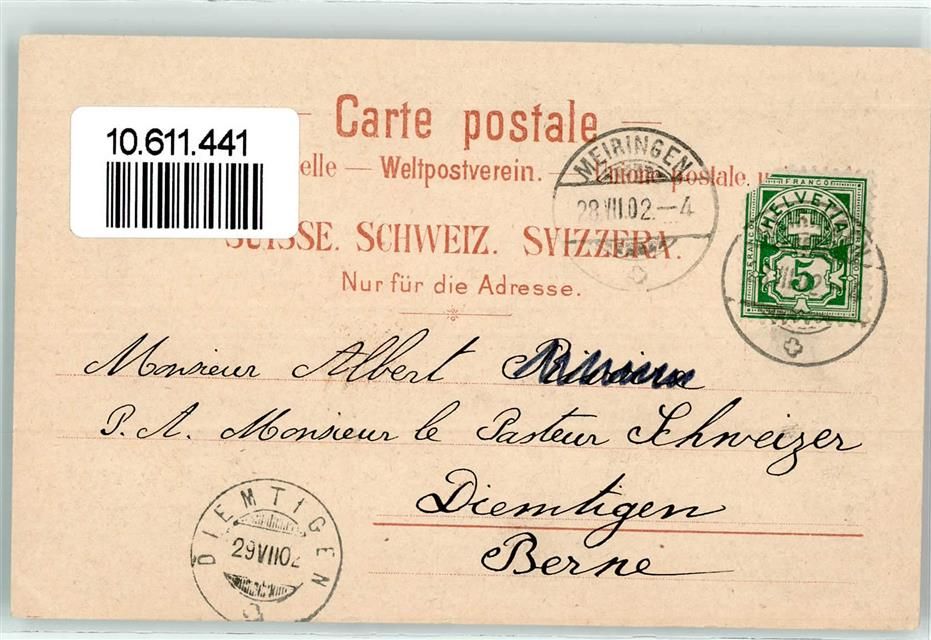 10.611.441
Carte postale
elle — Weltpostverein. — Unione postale u
SUISSE. SCHWEIZ. SVIZZERA.
Nur für die Adresse.
MEIRINGEN
28.VII.02.—4
FRANCO
HELVETIA
5
Monsieur Albert
P. A. Monsieur le Pasteur Schweizer
Diemtigen
Berne
DIEMTIGEN
29 VII 02